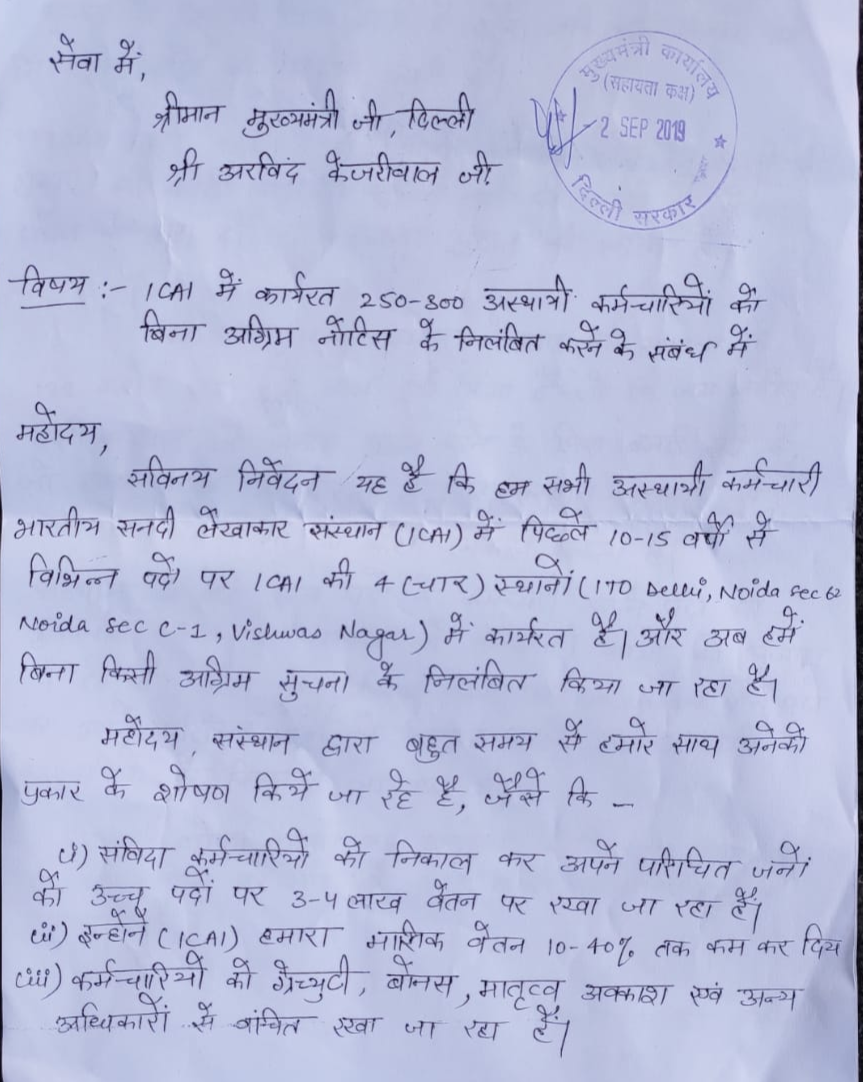 सेवा में,
मुख्यमंत्री कार्यालय
(सहायता कक्ष)
2 SEP 2019
दिल्ली सरकार
श्रीमान मुख्यमंत्री जी, दिल्ली
श्री अरविंद केजरीवाल जी
विषय :- ICAI में कार्यरत 250-300 अस्थायी कर्मचारियों को
बिना अग्रिम नोटिस के निलंबित करने के संबंध में
महोदय,
सविनय निवेदन यह है कि हम सभी अस्थायी कर्मचारी
भारतीय सनदी लेखाकार संस्थान (ICAI) में पिछले 10-15 वर्षों से
विभिन्न पदों पर ICAI की 4 (चार) स्थानों (ITO Delhi, Noida Sec 62
Noida Sec C-1, Vishwas Nagar) में कार्यरत है। और अब हमें
बिना किसी अग्रिम सुचना के निलंबित किया जा रहा है।
महोदय, संस्थान द्वारा बहुत समय से हमारे साथ अनेकों
प्रकार के शोषण किये जा रहे है, जैसे कि –
i) संविदा कर्मचारियों को निकाल कर अपने परिचित जनों
को उच्च पदों पर 3-4 लाख वेतन पर रखा जा रहा है।
ii) इन्होंने (ICAI) हमारा मासिक वेतन 10-40% तक कम कर दिय
iii) कर्मचारियों को ग्रेच्युटी, बोनस, मातृत्व अवकाश एवं अन्य
अधिकारों से वांचित रखा जा रहा है।